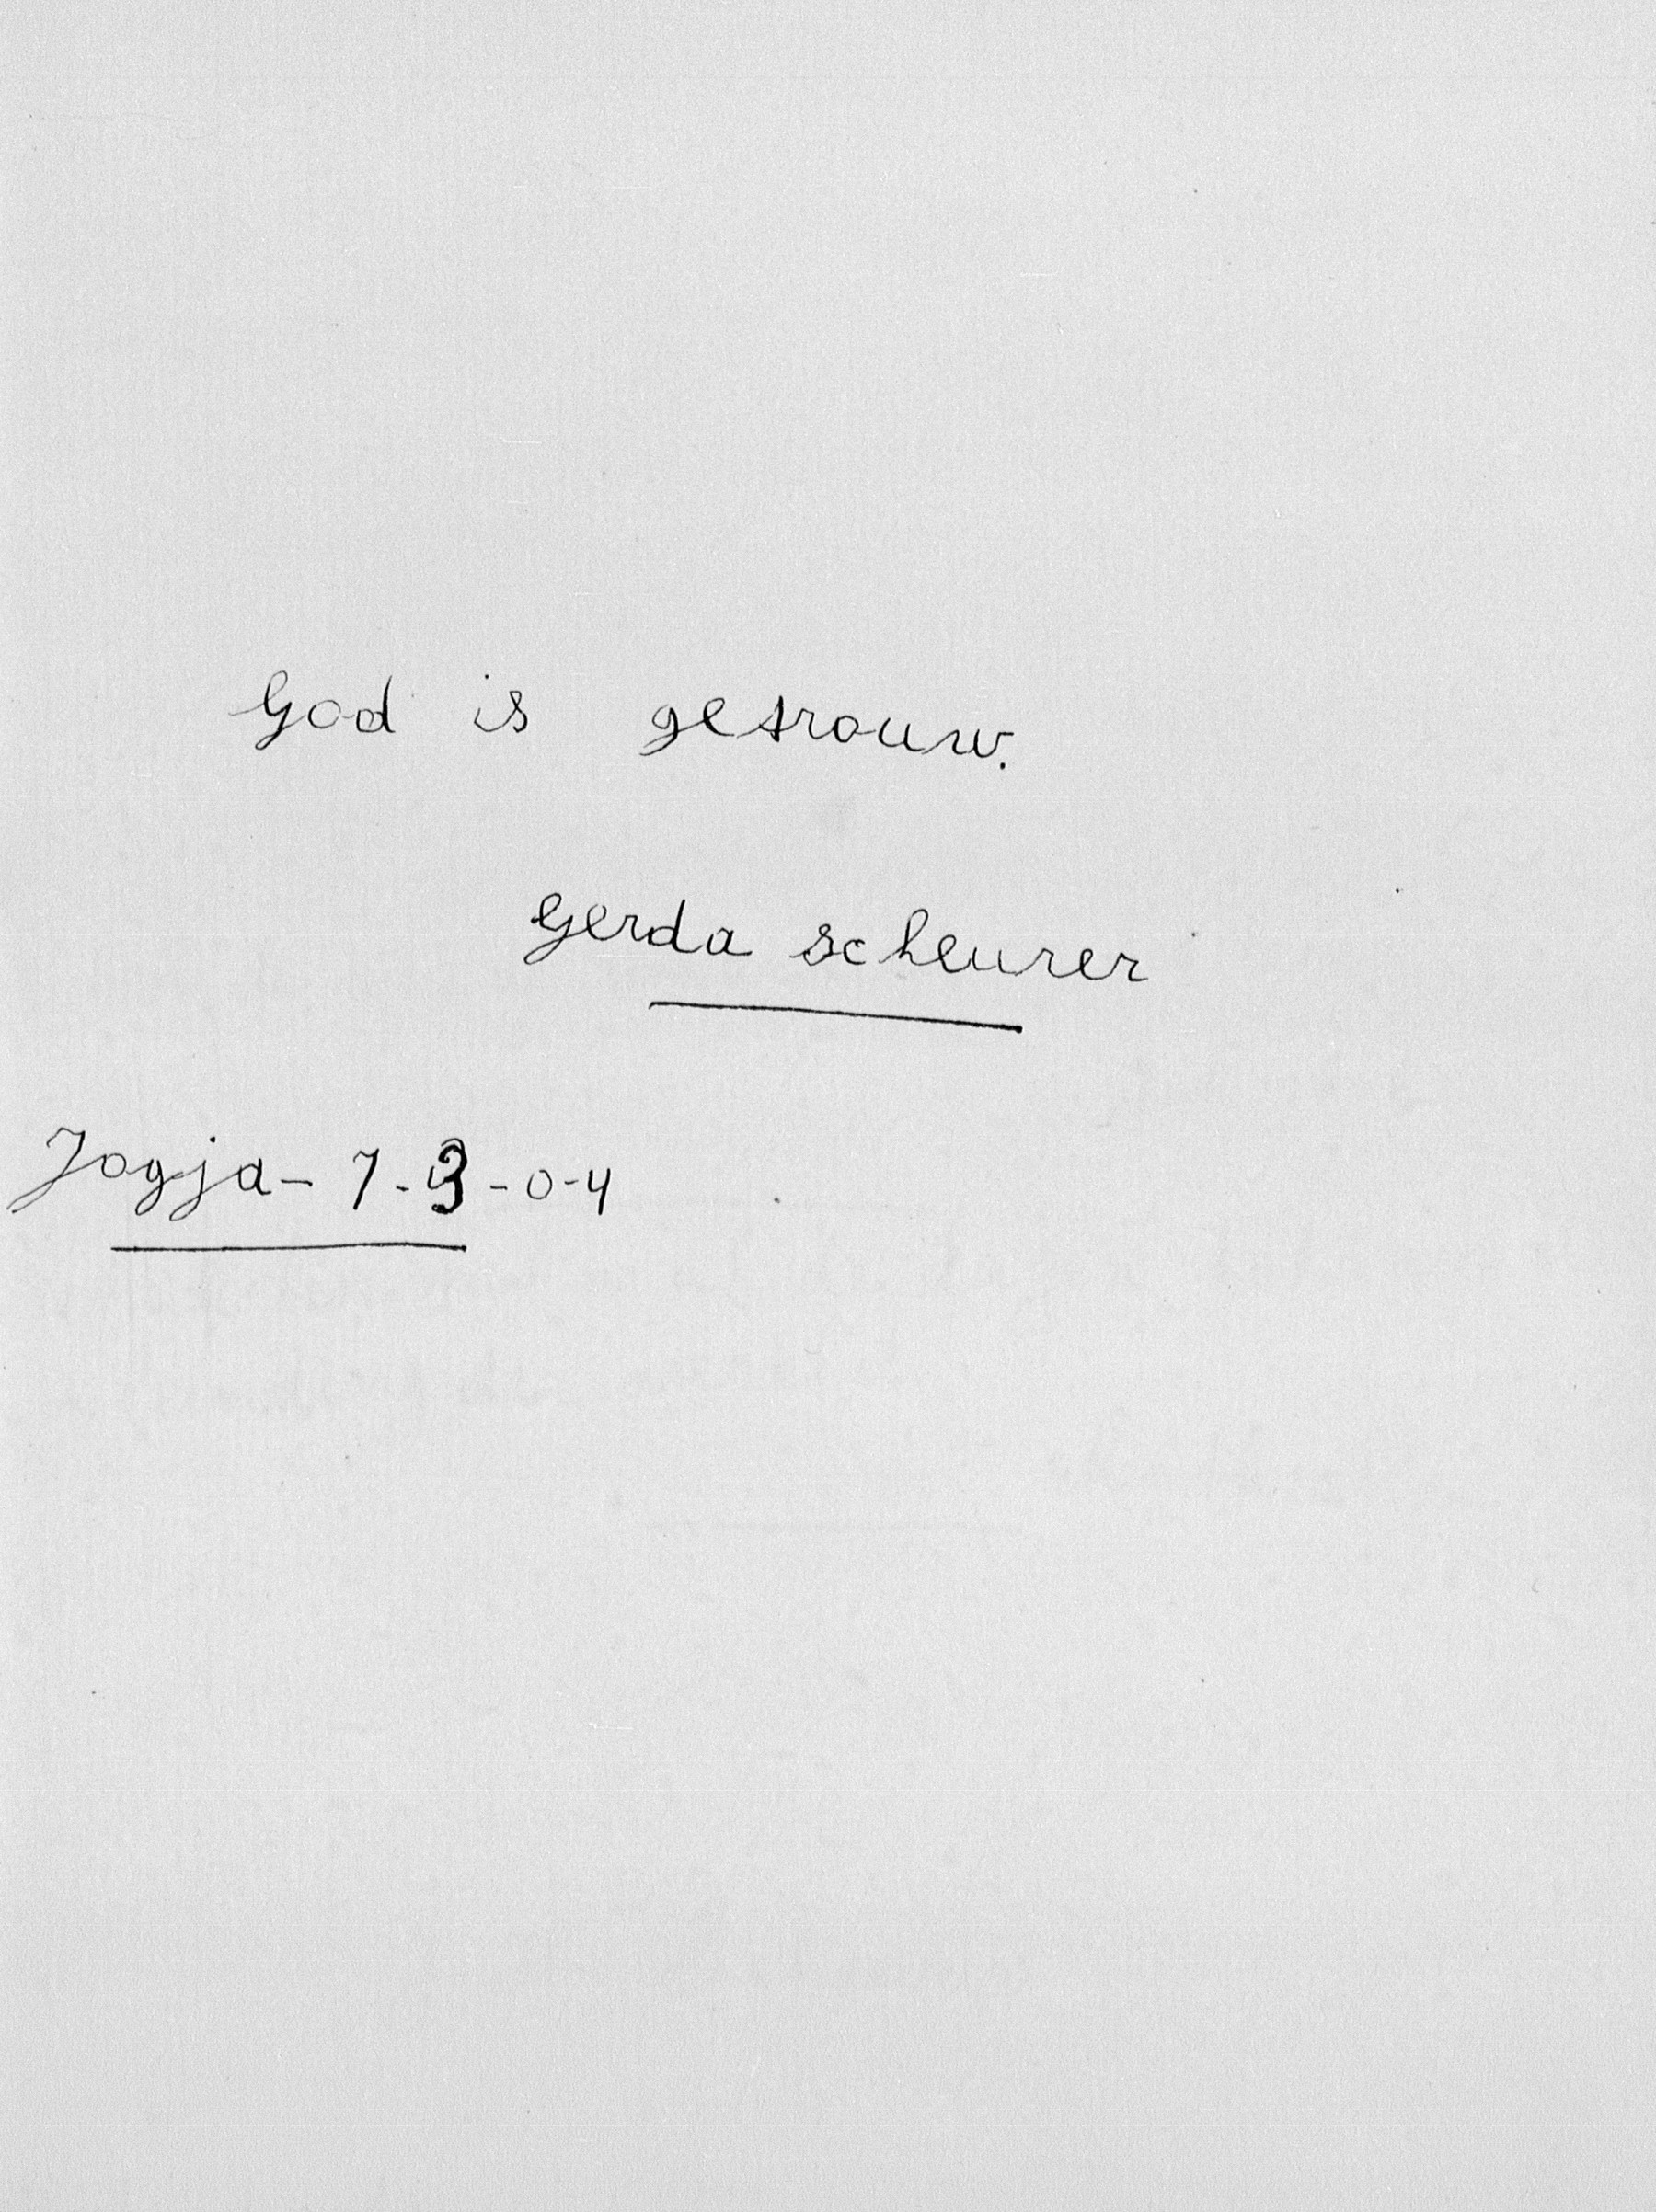 God is getrouw.
Gerda scheurer
Jogja - 7 - 3 - 0 - 4